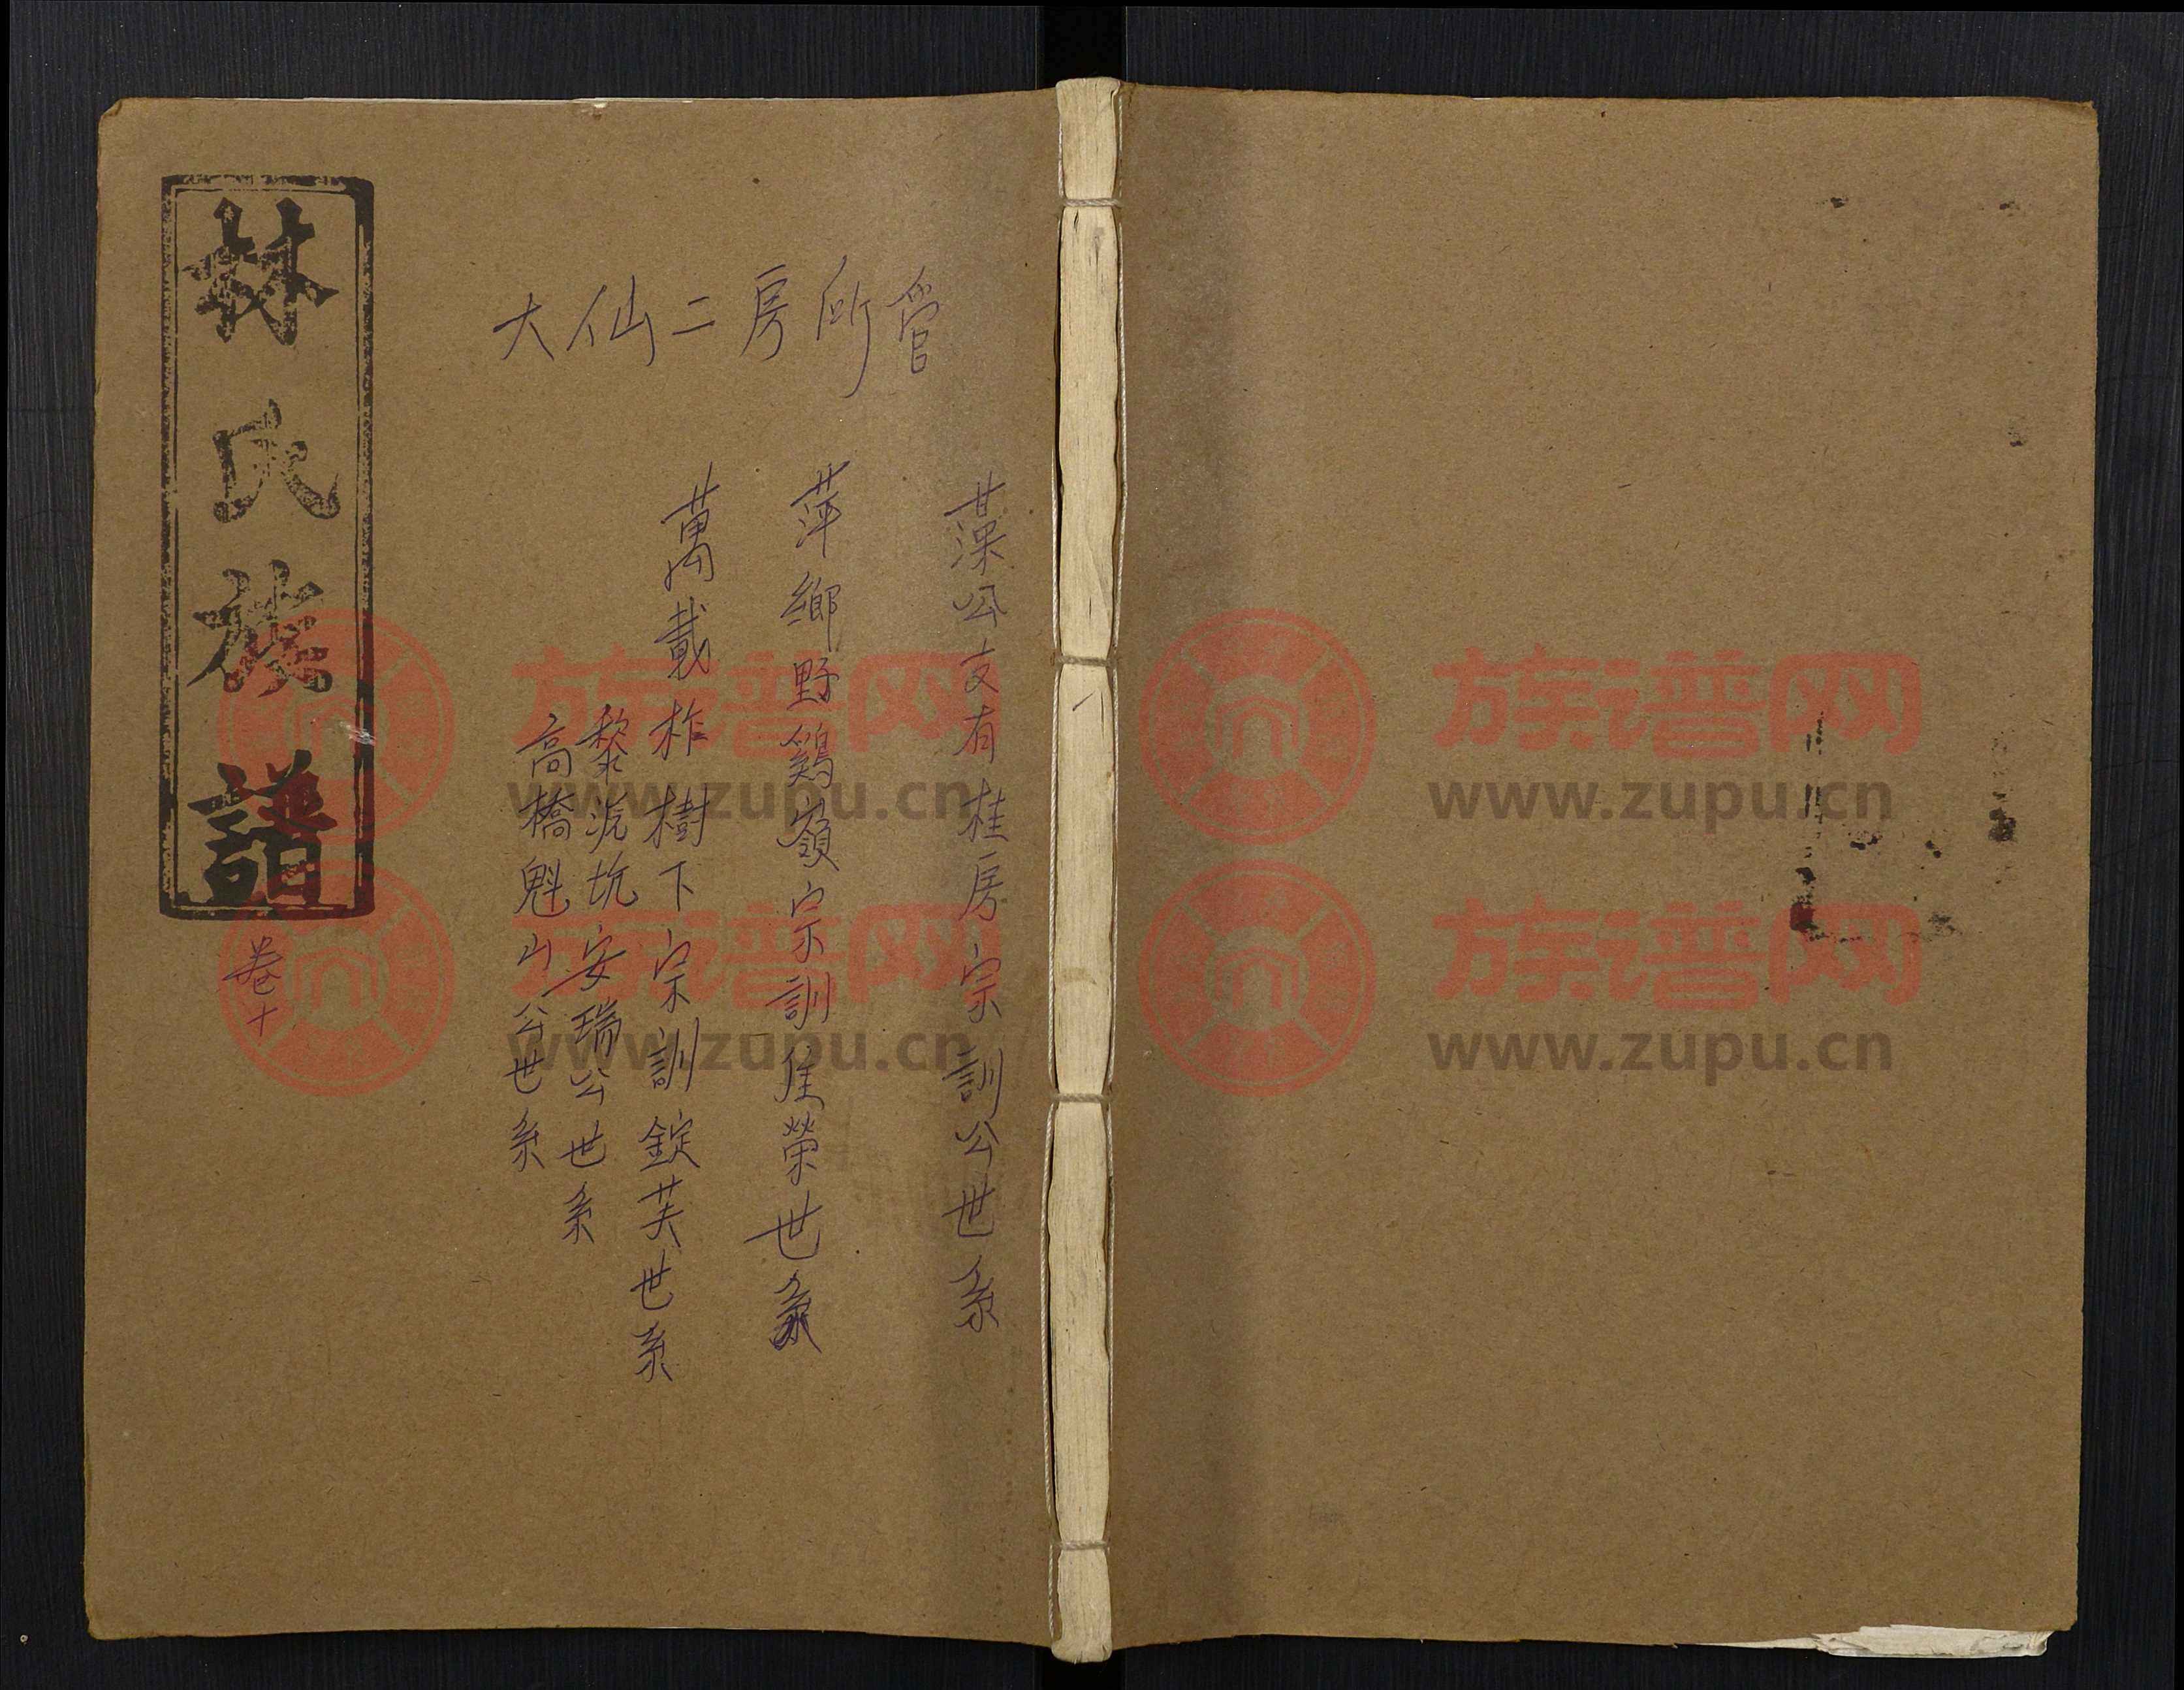 林氏族譜
卷十
大仙二房所管
藻公支有桂房宗訓公世系
萍鄉野鷄嶺宗訓 榮世系
萬載柞樹下宗訓錠芙世系
黎泥坑安瑞公世系
高橋魁山公世系
族谱网 族谱网
www.zupu.cn www.zupu.cn
族谱网 族谱网
www.zupu.cn www.zupu.cn